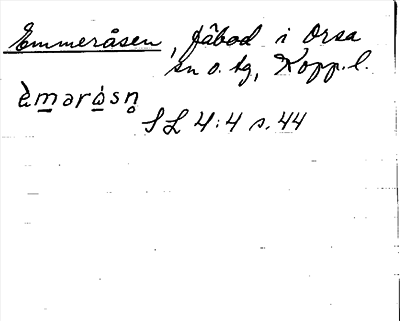 Emmeråsen, fäbod i Orsa
sn o. tg, Kopp. l.
ὲməråsn̥
SL 4:4 s. 44